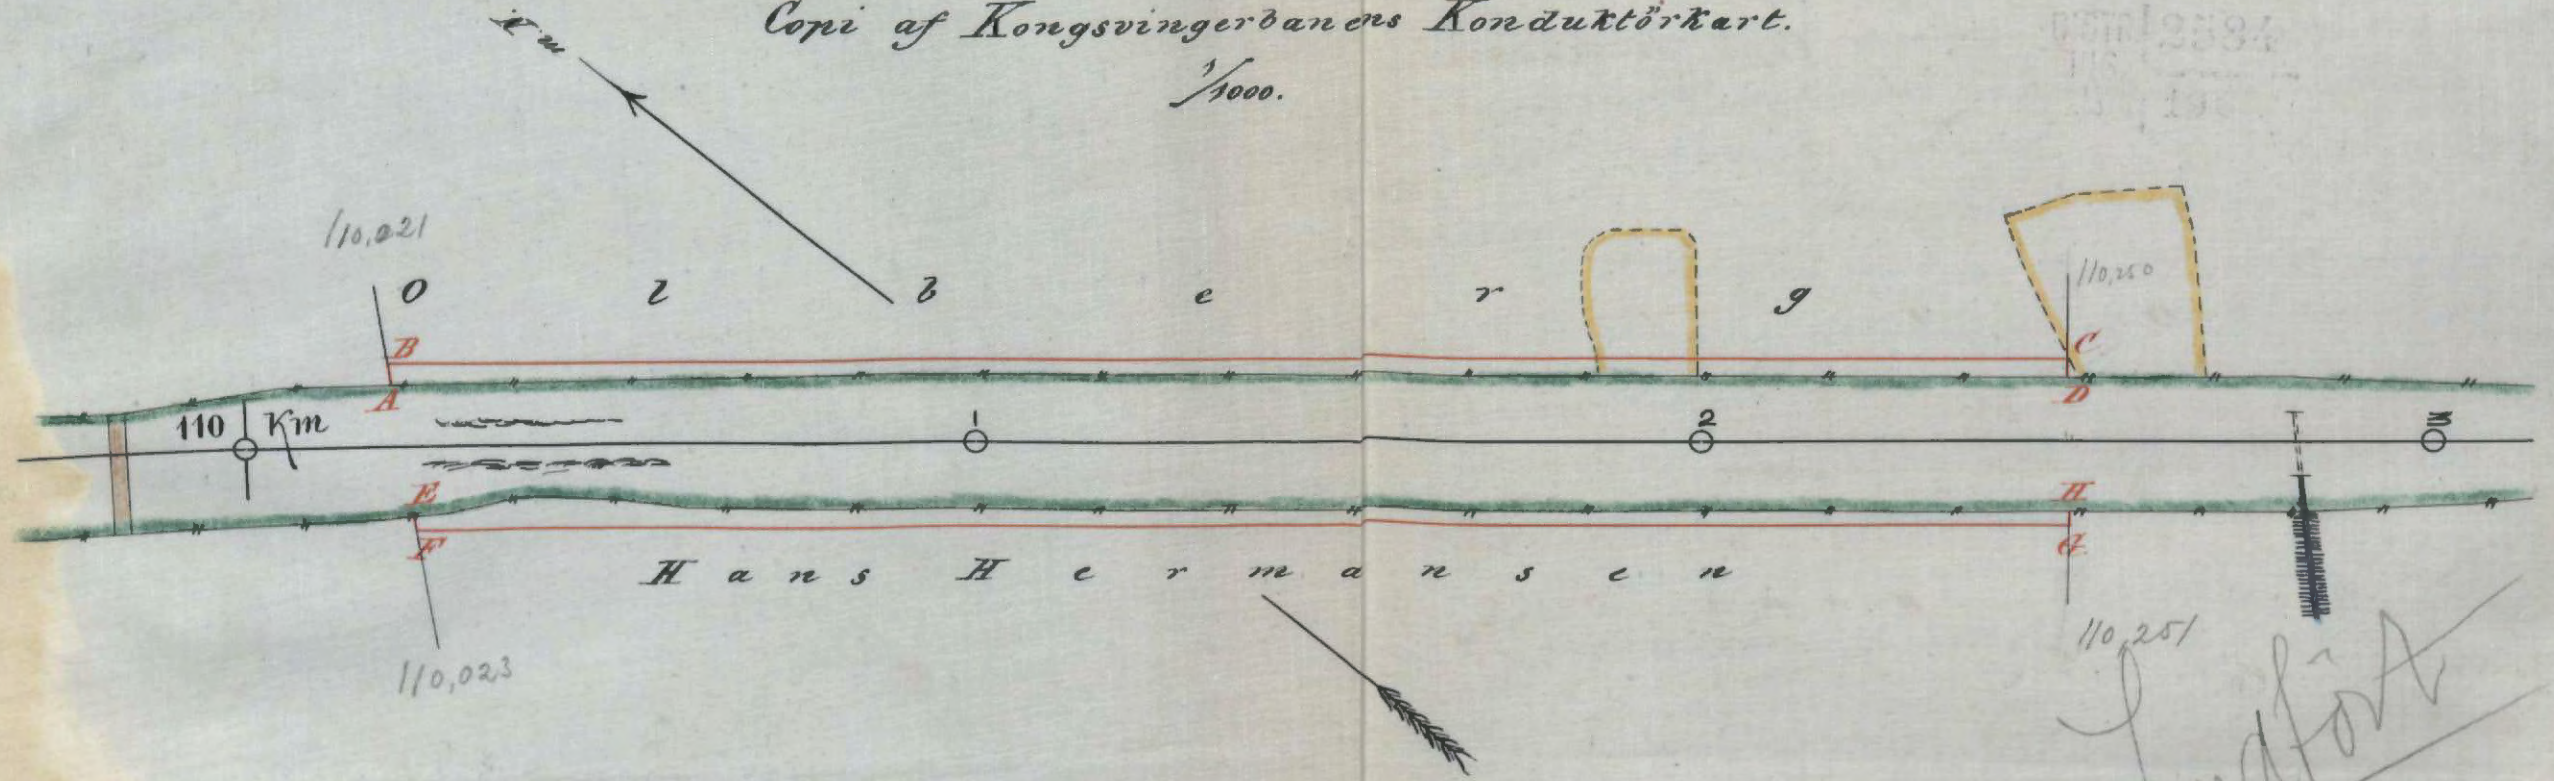 Copi af Kongsvingerbanens Konduktörkart.
1/1000.
110,021
Olberg
110,250
B
C
A
D
110 Km
1
2
3
E
H
F
G
Hans Hermansen
110,023
110,251